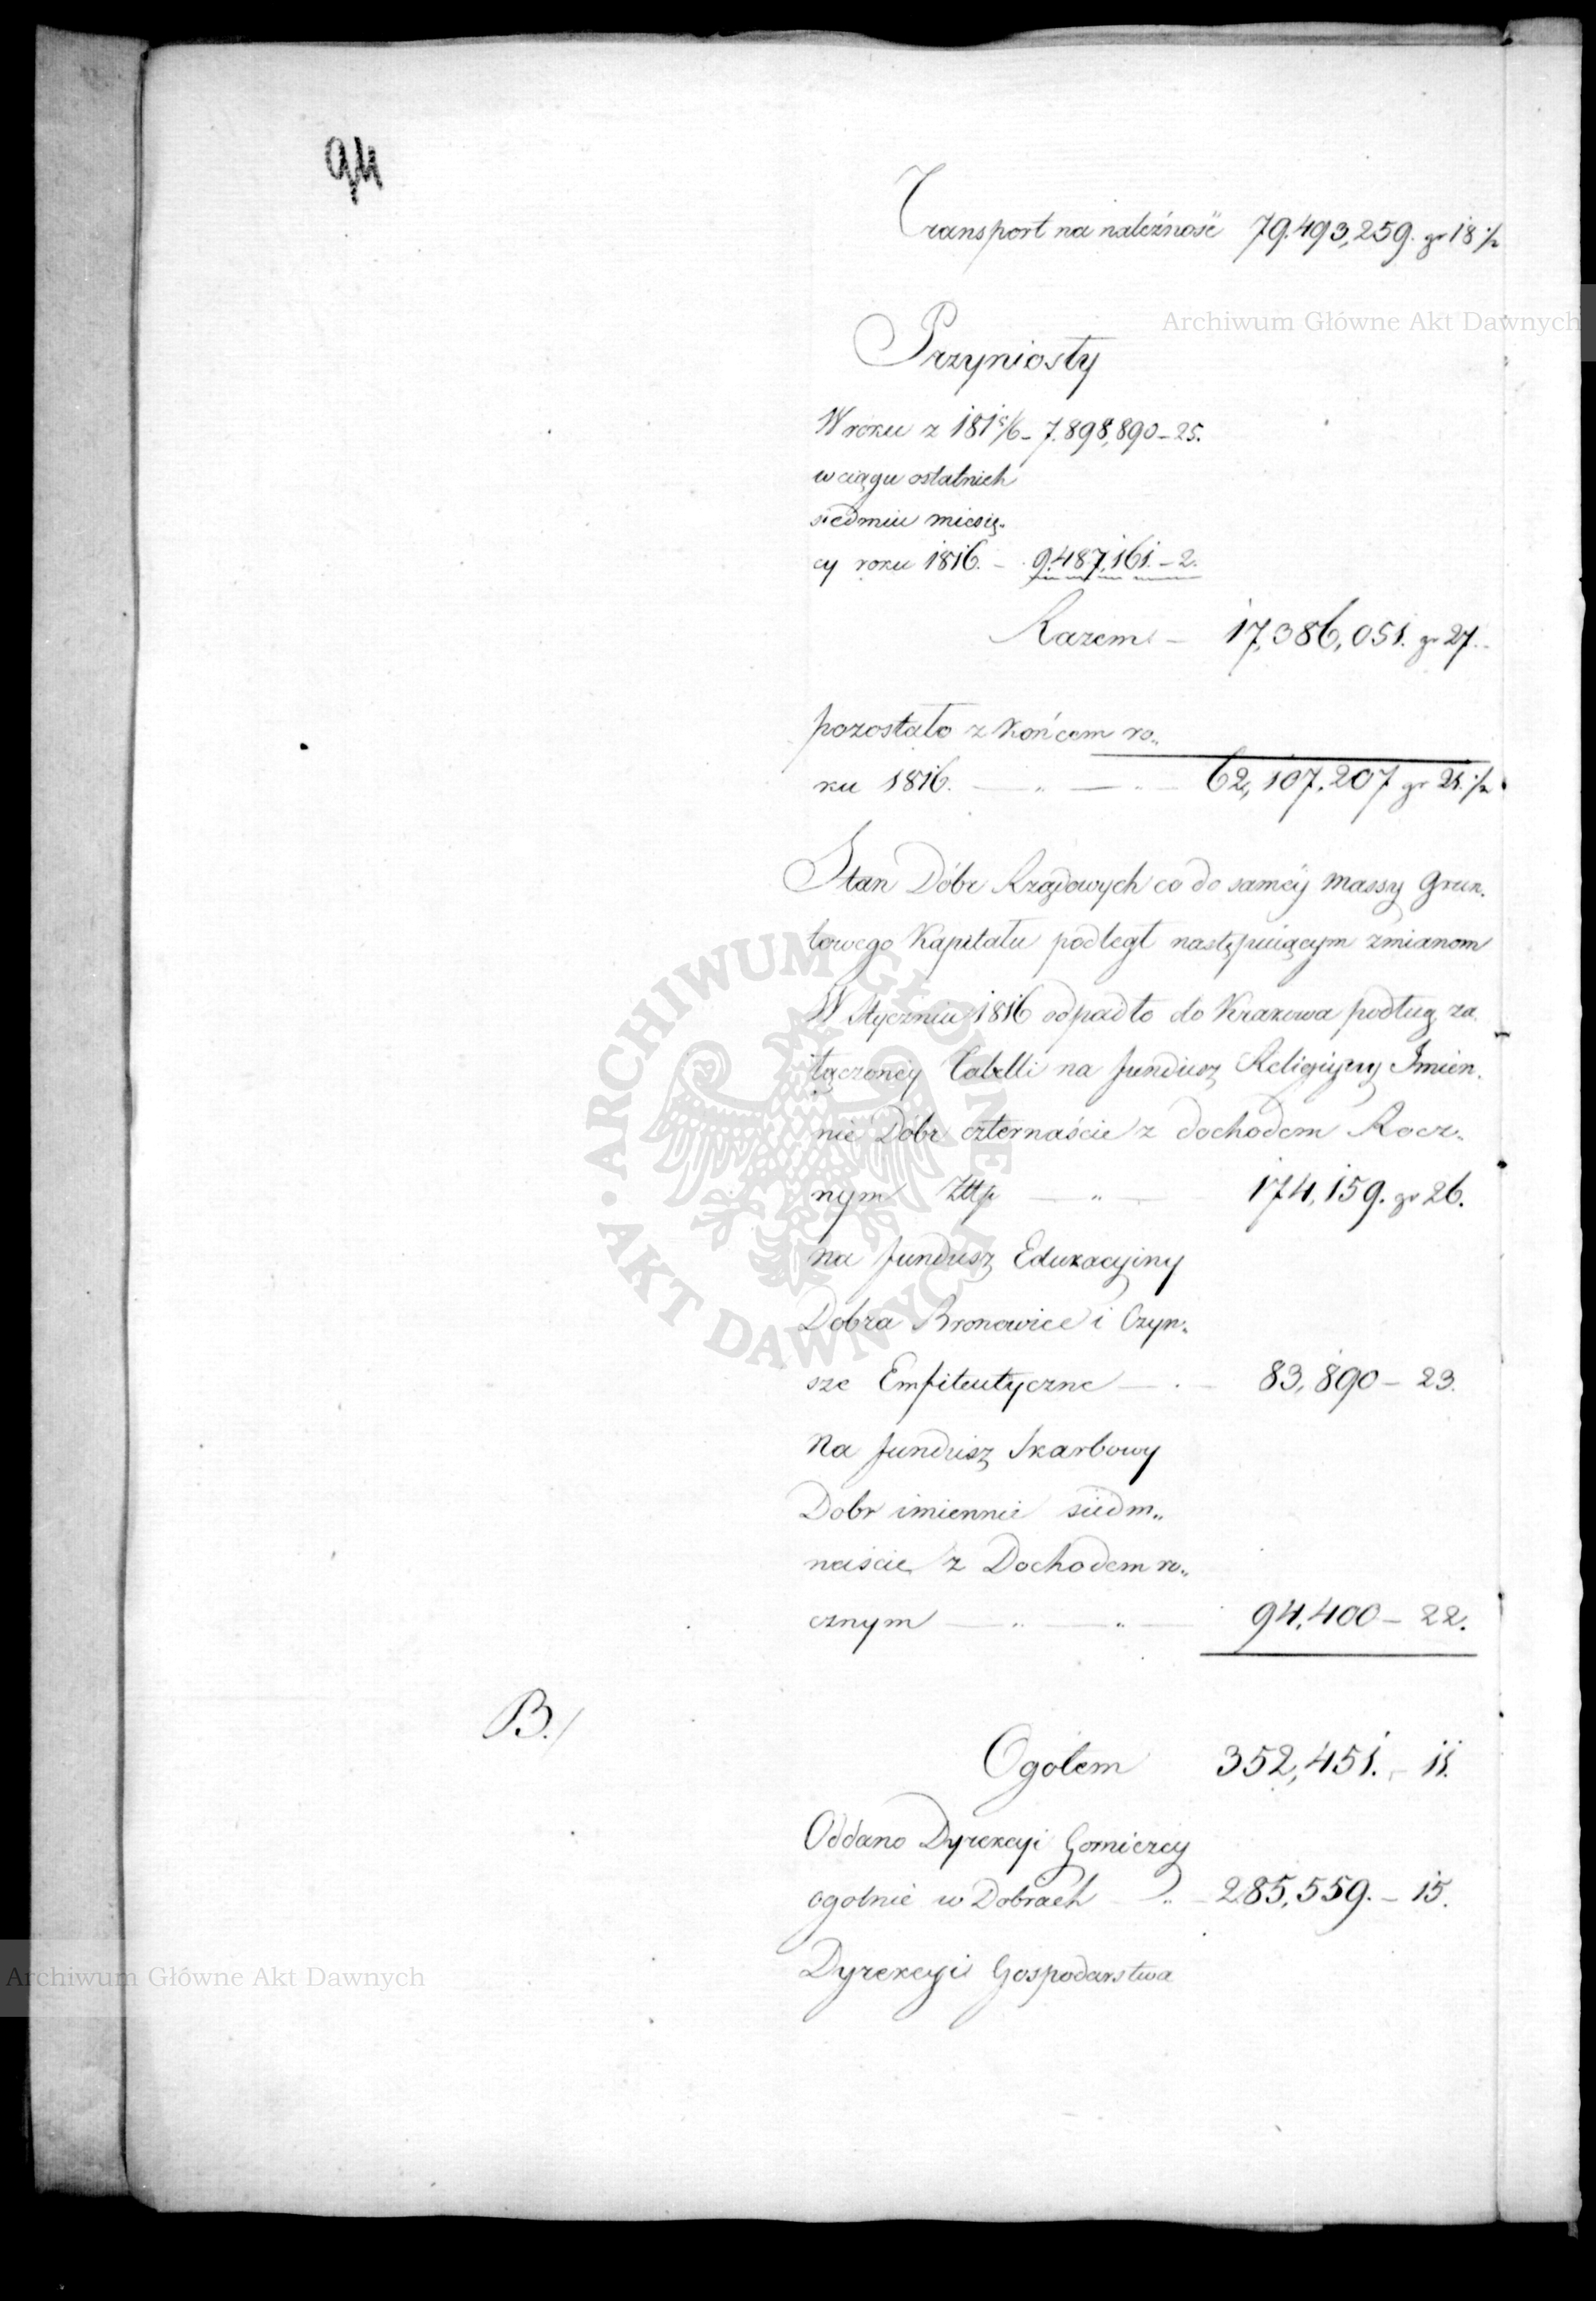 94
Transport na należność 79.493,259. gr 18 ½
Przyniosły
W roku z 181⁵/6 – 7.898,890 – 25.
w ciągu ostatnich
siedmiu miesię„
cy roku 1816. – 9.487,161. – 2.
Razem – 17,386,051. gr 27.
pozostało z końcem ro„
ku 1816. — „ — „ — 62,107.207 gr 21. ½
Stan Dóbr Rządowych co do saméy massy grun„
towego Kapitału podległ następuiącym zmianom
W Styczniu 1816 odpadło do Krakowa podług za„
łączonéy Tabelli na fundusz Religiyny Imien„
nie Dóbr czternaście z dochodem Rocz„
nym Złłp — „ — 174,159. gr 26.
na fundusz Edukacyiny
Dobra Bronowice i Czyn„
sze Emfiteutyczne — . — 83,890 – 23.
Na fundusz Skarbowy
Dobr imiennie siedm„
naście z Dochodem ro„
cznym — „ — „ — 94,400 – 22.
B./
Ogółem 352,451. – 11.
Oddano Dyrekcyi Gorniczey
ogolnie w Dobrach — „ – 285,559. – 15.
Dyrekcyi Gospodarstwa
Archiwum Główne Akt Dawnych
Archiwum Główne Akt Dawnych
ARCHIWUM GŁÓWNE AKT DAWNYCH